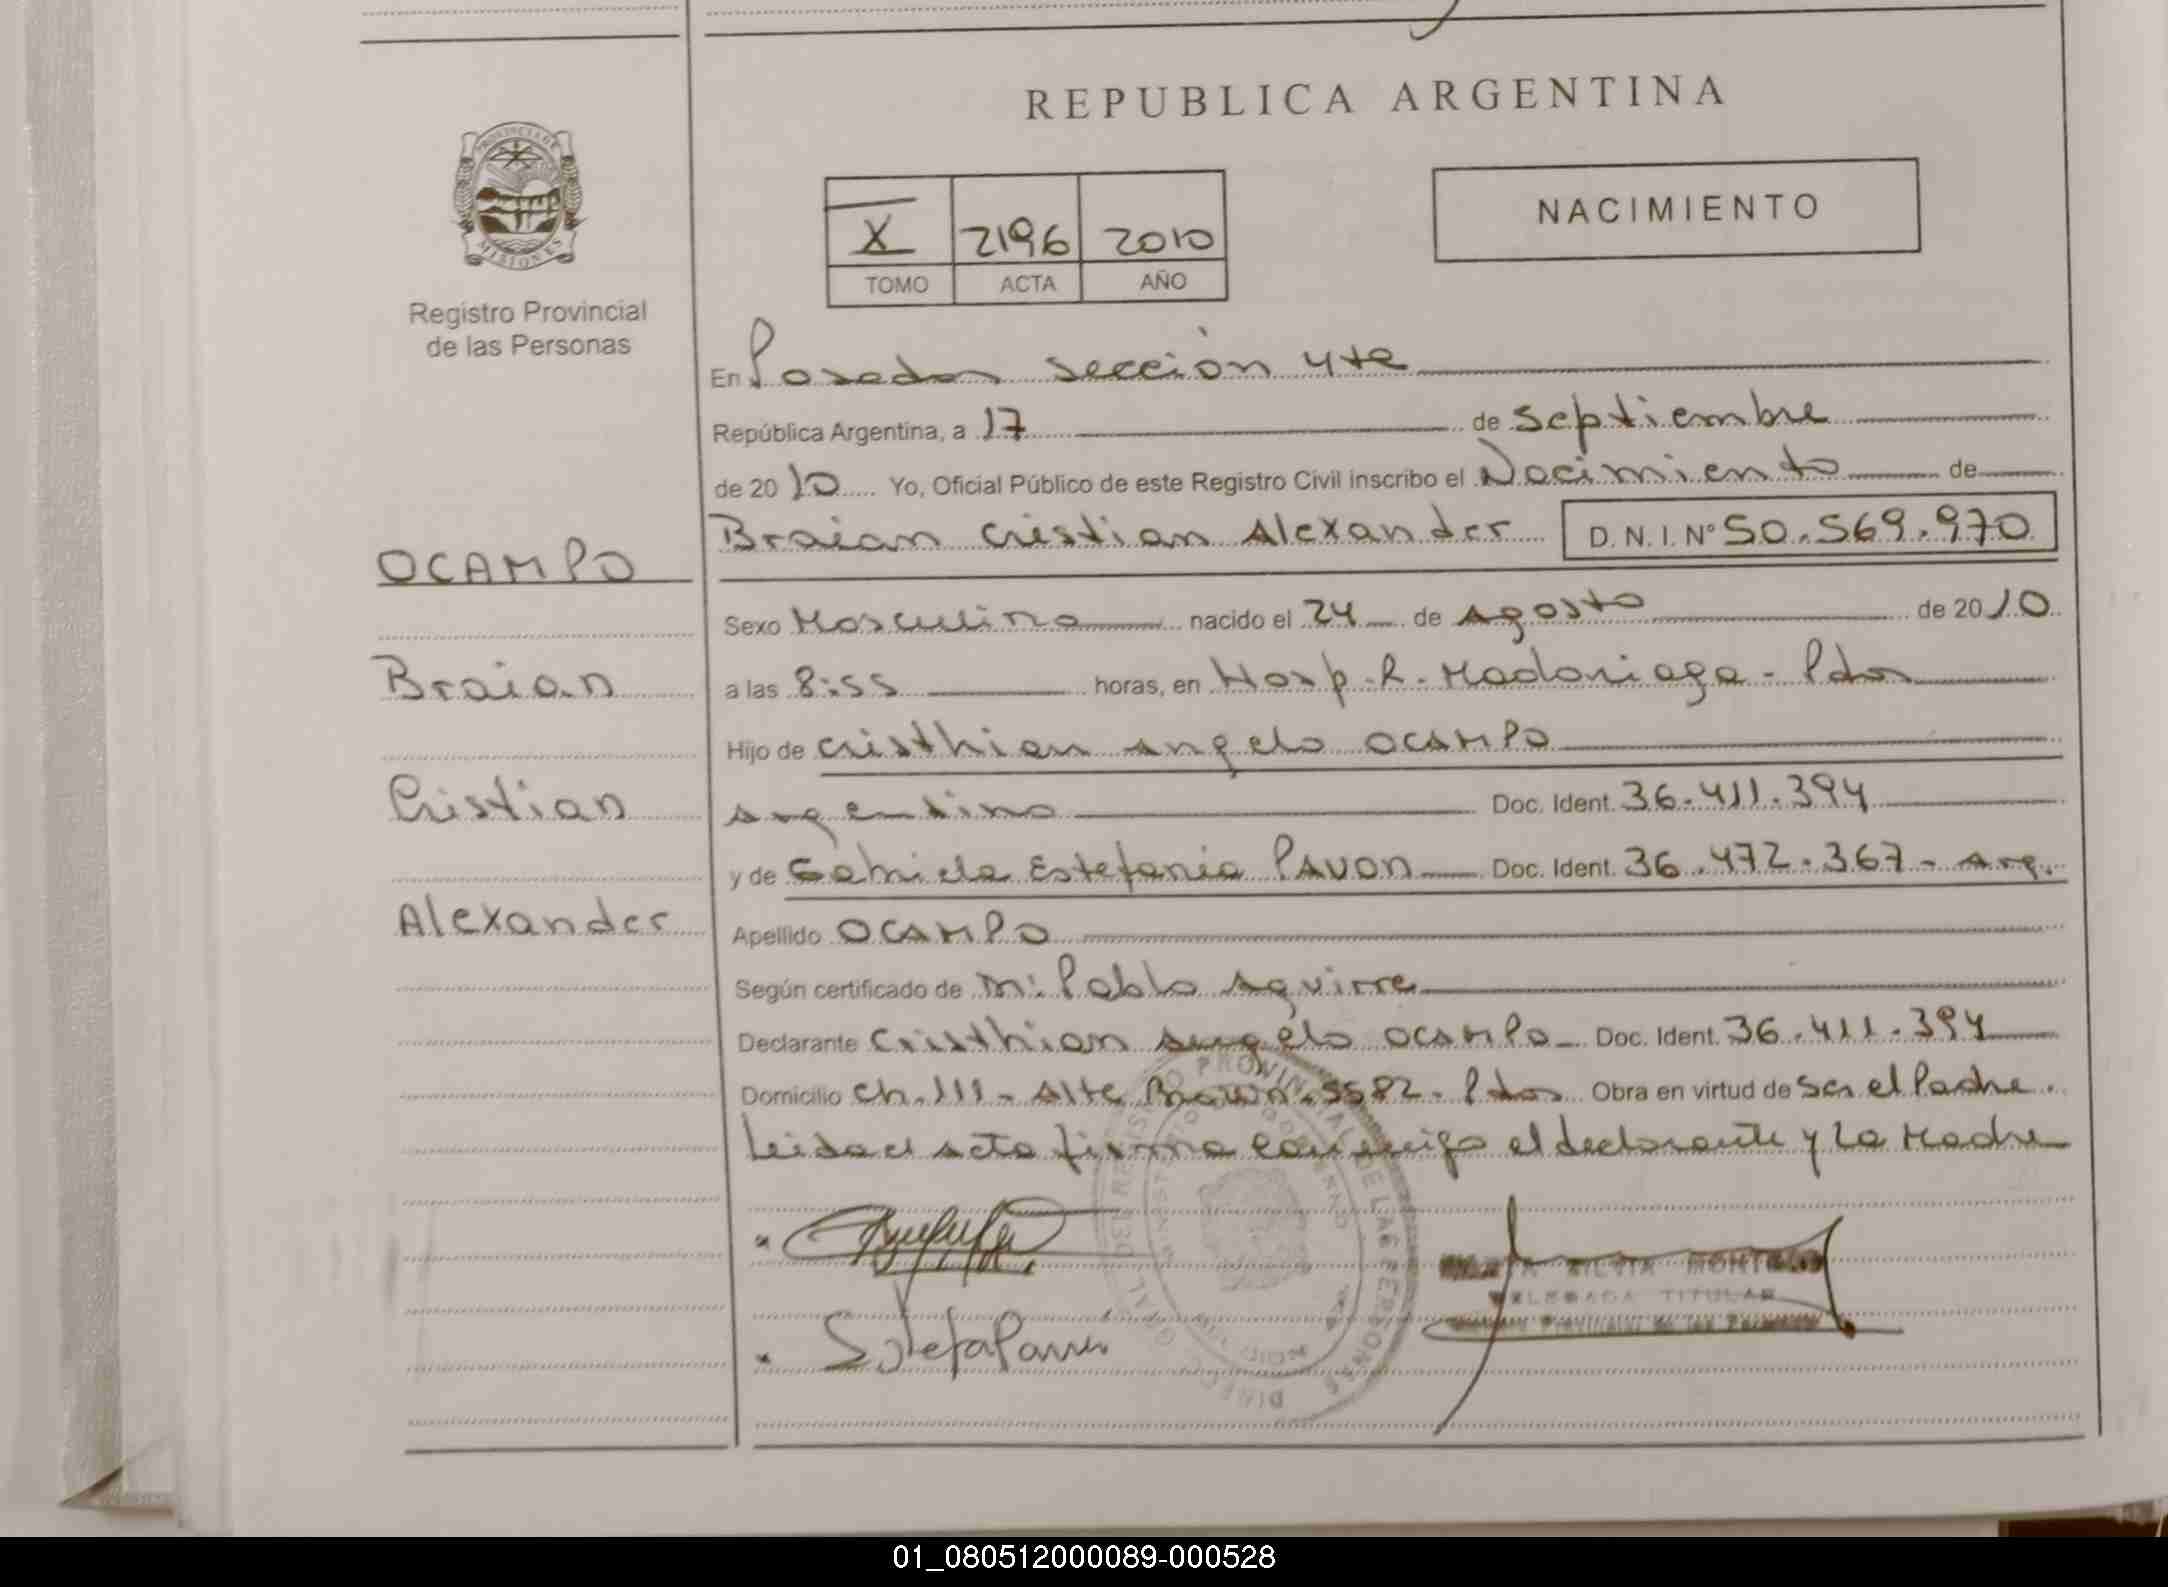 REPUBLICA ARGENTINA
PROVINCIA DE
MISIONES
Registro Provincial
de las Personas
X 2196 2010
TOMO ACTA AÑO
NACIMIENTO
En Posadas sección 4ta
República Argentina, a 17 de septiembre
de 2010 Yo, Oficial Público de este Registro Civil inscribo el Nacimiento de
Braian Cristian Alexander D.N.I. Nº 50.569.970
OCAMPO
Braian
Cristian
Alexander
Sexo Masculino nacido el 24 de agosto de 2010
a las 8:55 horas, en Hosp. R. Madariaga - Pdas
Hijo de Cristhian Angelo OCAMPO
Argentino Doc. Ident. 36.411.394
y de Gabriela Estefania PAVON Doc. Ident. 36.472.367 - Arg.
Apellido OCAMPO
Según certificado de M: Pablo Aguirre
Declarante Cristhian Angelo OCAMPO Doc. Ident. 36.411.394
Domicilio Ch. 111 - Alte Brown. 5582 - Pdas Obra en virtud de ser el Padre.
Leida el acta firma conmigo el declarante y La Madre
SILVIA
DELEGADA TITULAR
Provincial de las Personas
01_080512000089-000528